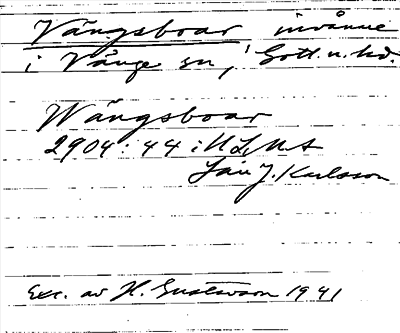 Vängsboar invånare
i Vänge sn, Gotl. n. hd.
Wängsboar
2904:44 i ULMA
Karlsson
Exc. av H. Gustavson 1941